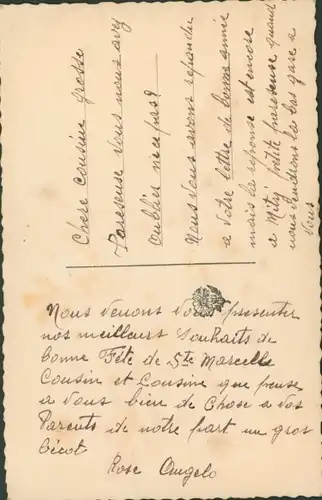 Chere cousine grosse
Pareseuse vous nous avez
oubliés nce pas?
Nous vous avons repondre
a votre lettre de bonne année
mais la reponse est encore
a Mity petite pareseuse quand
nous viendrons la bas gase a
vous
Nous venons vous presenter
nos meilleurs souhaits de
bonne Fête de Ste Marcelle
Cousin et Cousine que pense
a vous bien de Chose a vos
Parents de notre part un gros
bécot
Rose Angelo